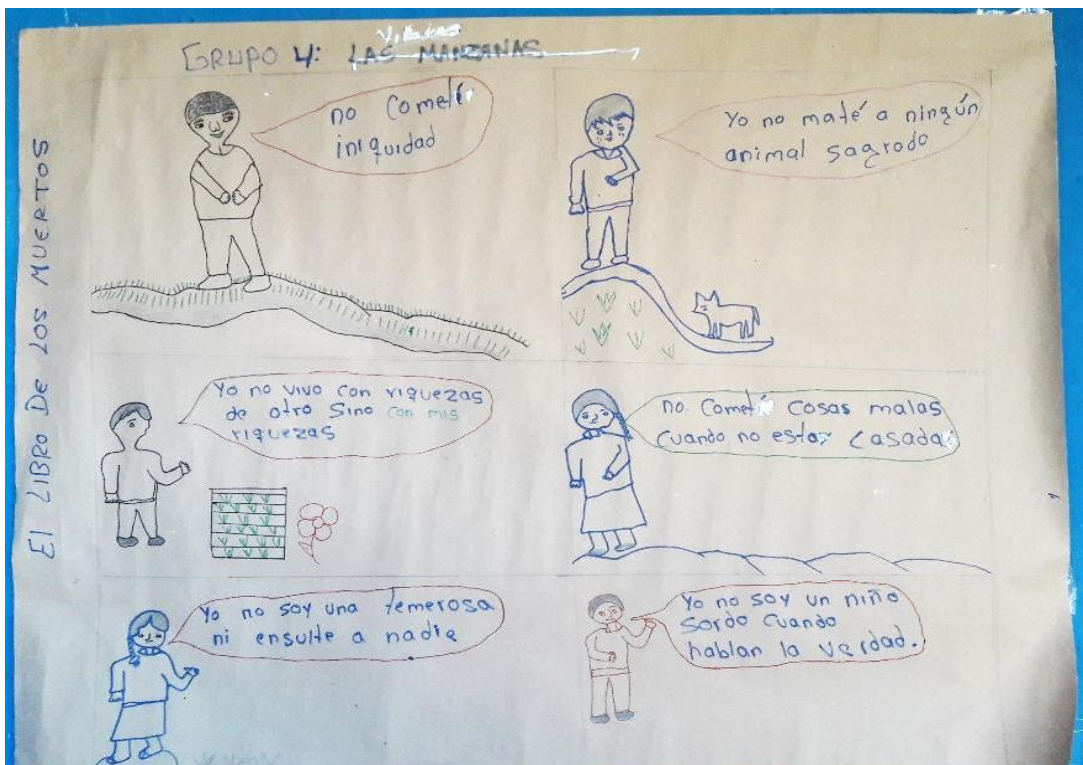 GRUPO 4: LAS MANZANAS
El LIBRO De LOS MUERTOS
no Cometí
iniquidad
Yo no maté a ningún
animal sagrado
Yo no vivo con riquezas
de otro Sino con mis
riquezas
no Cometí cosas malas
cuando no estar casada
Yo no soy una temerosa
ni ensulte a nadie
Yo no soy un niño
sordo cuando
hablan la verdad.